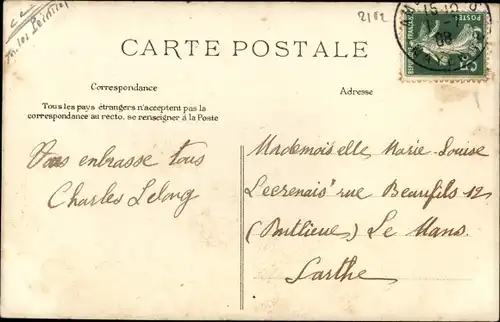 2182
CARTE POSTALE
Correspondance
Tous les pays étrangers n'acceptent pas la
correspondance au recto, se renseigner à la Poste
Vous enbrasse tous
Charles Lelong
Adresse
Mademoiselle Marie-Louise
rue Beaufils 12
(Pontlieue) Le Mans.
Sarthe
15
08
5